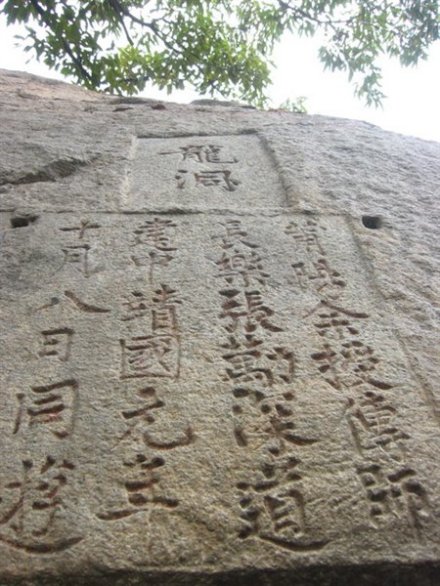 龍洞
莆陽余授傳師
長樂張勱深道
建中靖國元年
十月八日同遊